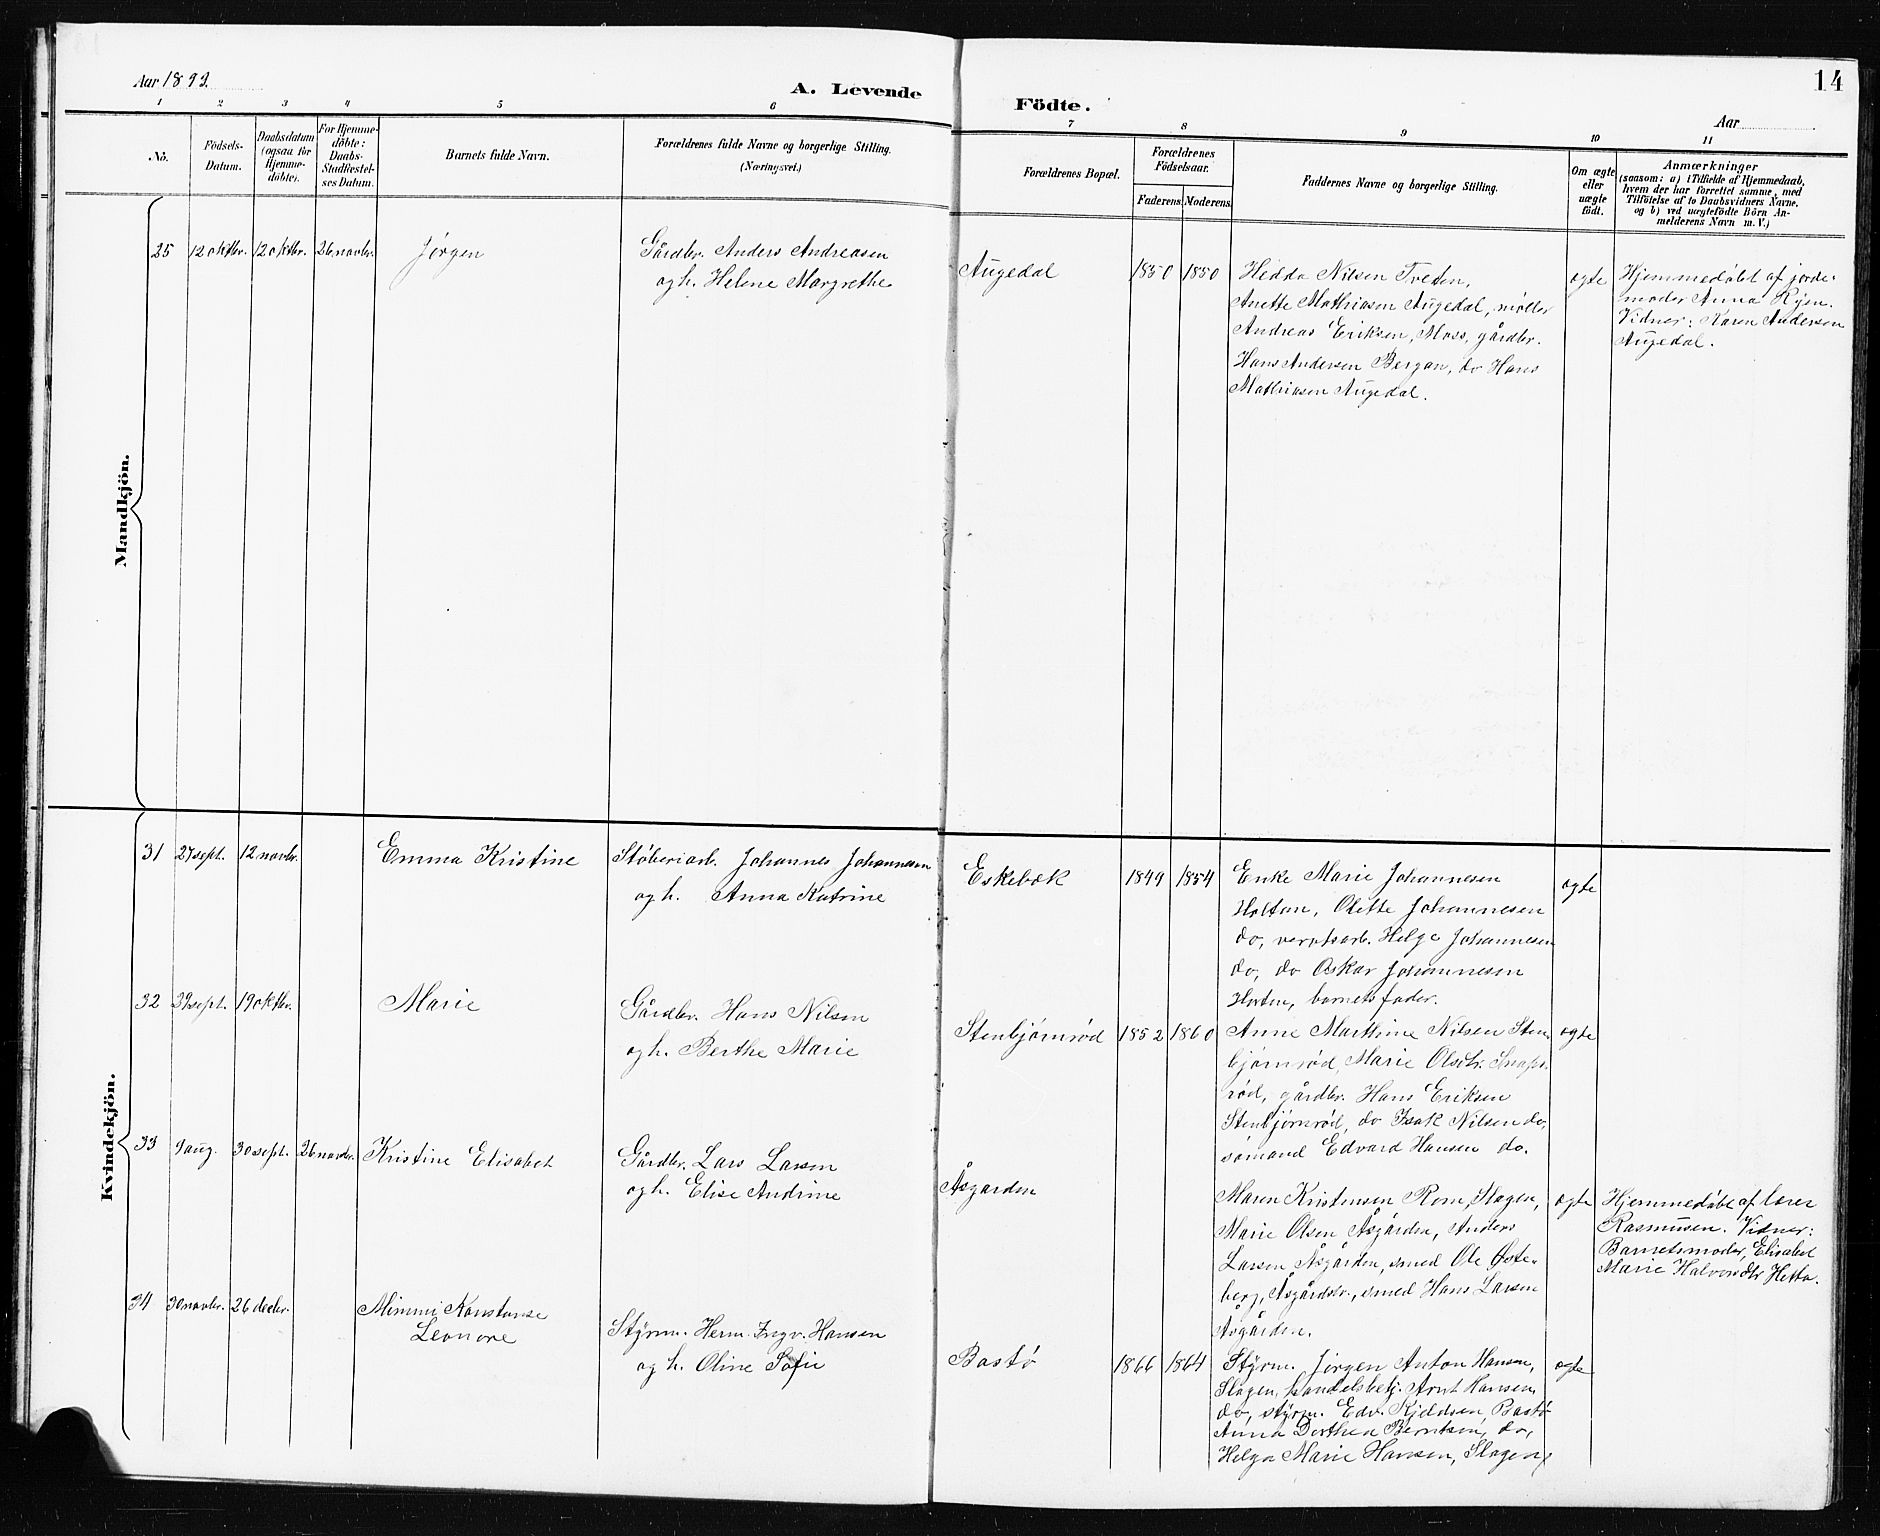 14
Aar 1899.
A. Levende Födte.
Aar
1 2 3 4 5 6 7 8 9 10 11
No.
Födsels-
Datum.
Daabsdatum
(ogsaa for
Hjemme-
döbte).
For Hjemme-
döbte:
Daabs-
Stadfæstel-
ses Datum.
Barnets fulde Navn.
Forældrenes fulde Navne og borgerlige Stilling.
(Næringsvei.)
Forældrenes Bopæl.
Forældrenes
Födselsaar.
Faderens. Moderens.
Faddernes Navne og borgerlige Stilling.
Om ægte
eller
uægte
födt.
Anmærkninger
(saasom: a) i Tilfælde af Hjemmedaab,
hvem der har forrettet samme, med
Tilföielse af to Daabsvidners Navne.
og b) ved uægtefödte Börn An-
melderens Navn m. V.)
Mandkjön.
25 12 oktbr. 12 oktbr. 26 novbr. Jørgen
Gårdbr. Anders Andreasen
og h. Helene Margrethe
Augedal 1850 1850
Hedda Nilsen Tveten,
Anette Mathiasen Augedal, møller
Andreas Eriksen, Moss, gårdbr.
Hans Andersen Bergan, do Hans
Mathiasen Augedal.
ægte
Hjemmedøbt af jorde-
moder Anna Ryen.
Vidner: Karen Andersen
Augedal.
Kvindekjön.
31 27 sept. 12 novbr. Emma Kristine
Støberiarb. Johannes Johannesen
og h. Anna Katrine
Eskebæk 1849 1854
Enke Marie Johannesen
Holtan, Olette Johannesen
do, verftsarb. Helge Johannesen
do, do Oskar Johannesen
Horten, barnets fader.
ægte
32 sept. 19 oktbr. Marie
Gårdbr. Hans Nilsen
og h. Berthe Marie
Stenbjørnrød 1852 1860
Anne Marthine Nilsen Sten-
bjørnrød, Marie Olsdtr. Snaps-
rød, gårdbr. Hans Eriksen
Stenbjørnrød, do Isak Nilsen do,
sømand Edvard Hansen do.
ægte
33 9 aug. 30 sept. 26 novbr. Kristine Elisabet
Gårdbr. Lars Larsen
og h. Elise Andrine
Åsgården
Maren Kristensen Rom, Slagen,
Marie Olsen Åsgården, Anders
Larsen Åsgården, smed Ole Øste-
berg, Åsgårdstr., smed Hans Larsen
Åsgården.
ægte
Hjemmedøbt af lærer
Rasmussen. Vidner:
Barnetsmoder, Elisabet
Marie Halvorsdtr Hetta.
34 30 novbr. 26 decbr. Mimmi Konstanse
Leonore
Styrm. Herm. Ingv. Hansen
og h. Oline Sofie
Bastø 1866 1864
Styrm. Jørgen Anton Hansen,
Slagen, handelsbetj. Arnt Hansen
do, styrm. Edv. Kjeldsen, Bastø
Anna Dorthea Berntsen, do,
Helga Marie Hansen, Slagen,
ægte